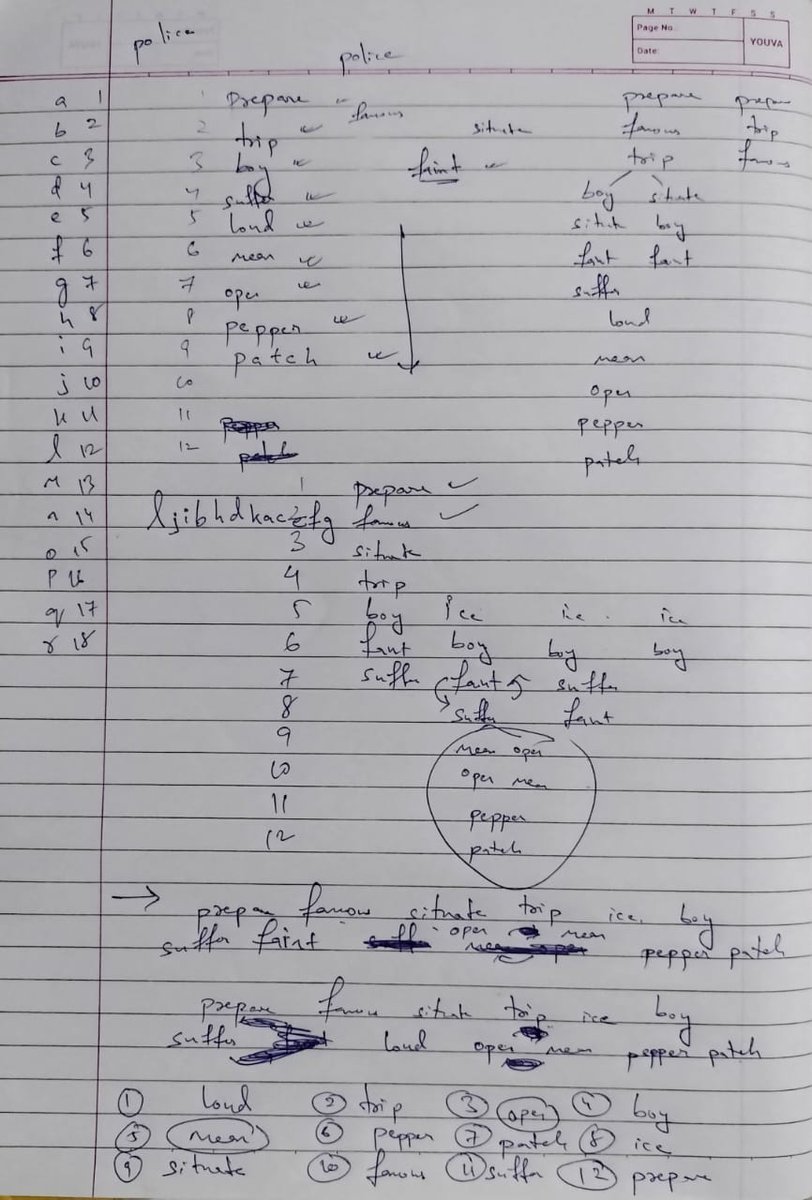 M T W T F S S
Page No.
Date:
YOUVA
police
police
a 1 1 Prepare famous prepare prepare
b 2 2 trip situate famous trip
c 3 3 boy faint trip famous
d 4 4 suffer boy situate
e 5 5 loud situate boy
f 6 6 mean faint faint
g 7 7 open suffer
h 8 8 pepper loud
i 9 9 patch mean
j 10 10 open
k 11 11 pepper pepper
l 12 12 patch patch
m 13 1 prepare
n 14 ljibhdkacefg 2 famous
o 15 3 situate
p 16 4 trip
q 17 5 boy ice ice ice
r 18 6 faint boy boy boy
7 suffer faint suffer
8 suffer faint
9 mean open
10 open mean
11 pepper
12 patch
→ prepare famous situate trip ice boy
suffer faint open mean pepper patch
prepare famous situate trip ice boy
suffer loud open mean pepper patch
① loud ② trip ③ open ④ boy
⑤ mean ⑥ pepper ⑦ patch ⑧ ice
⑨ situate ⑩ famous ⑪ suffer ⑫ prepare